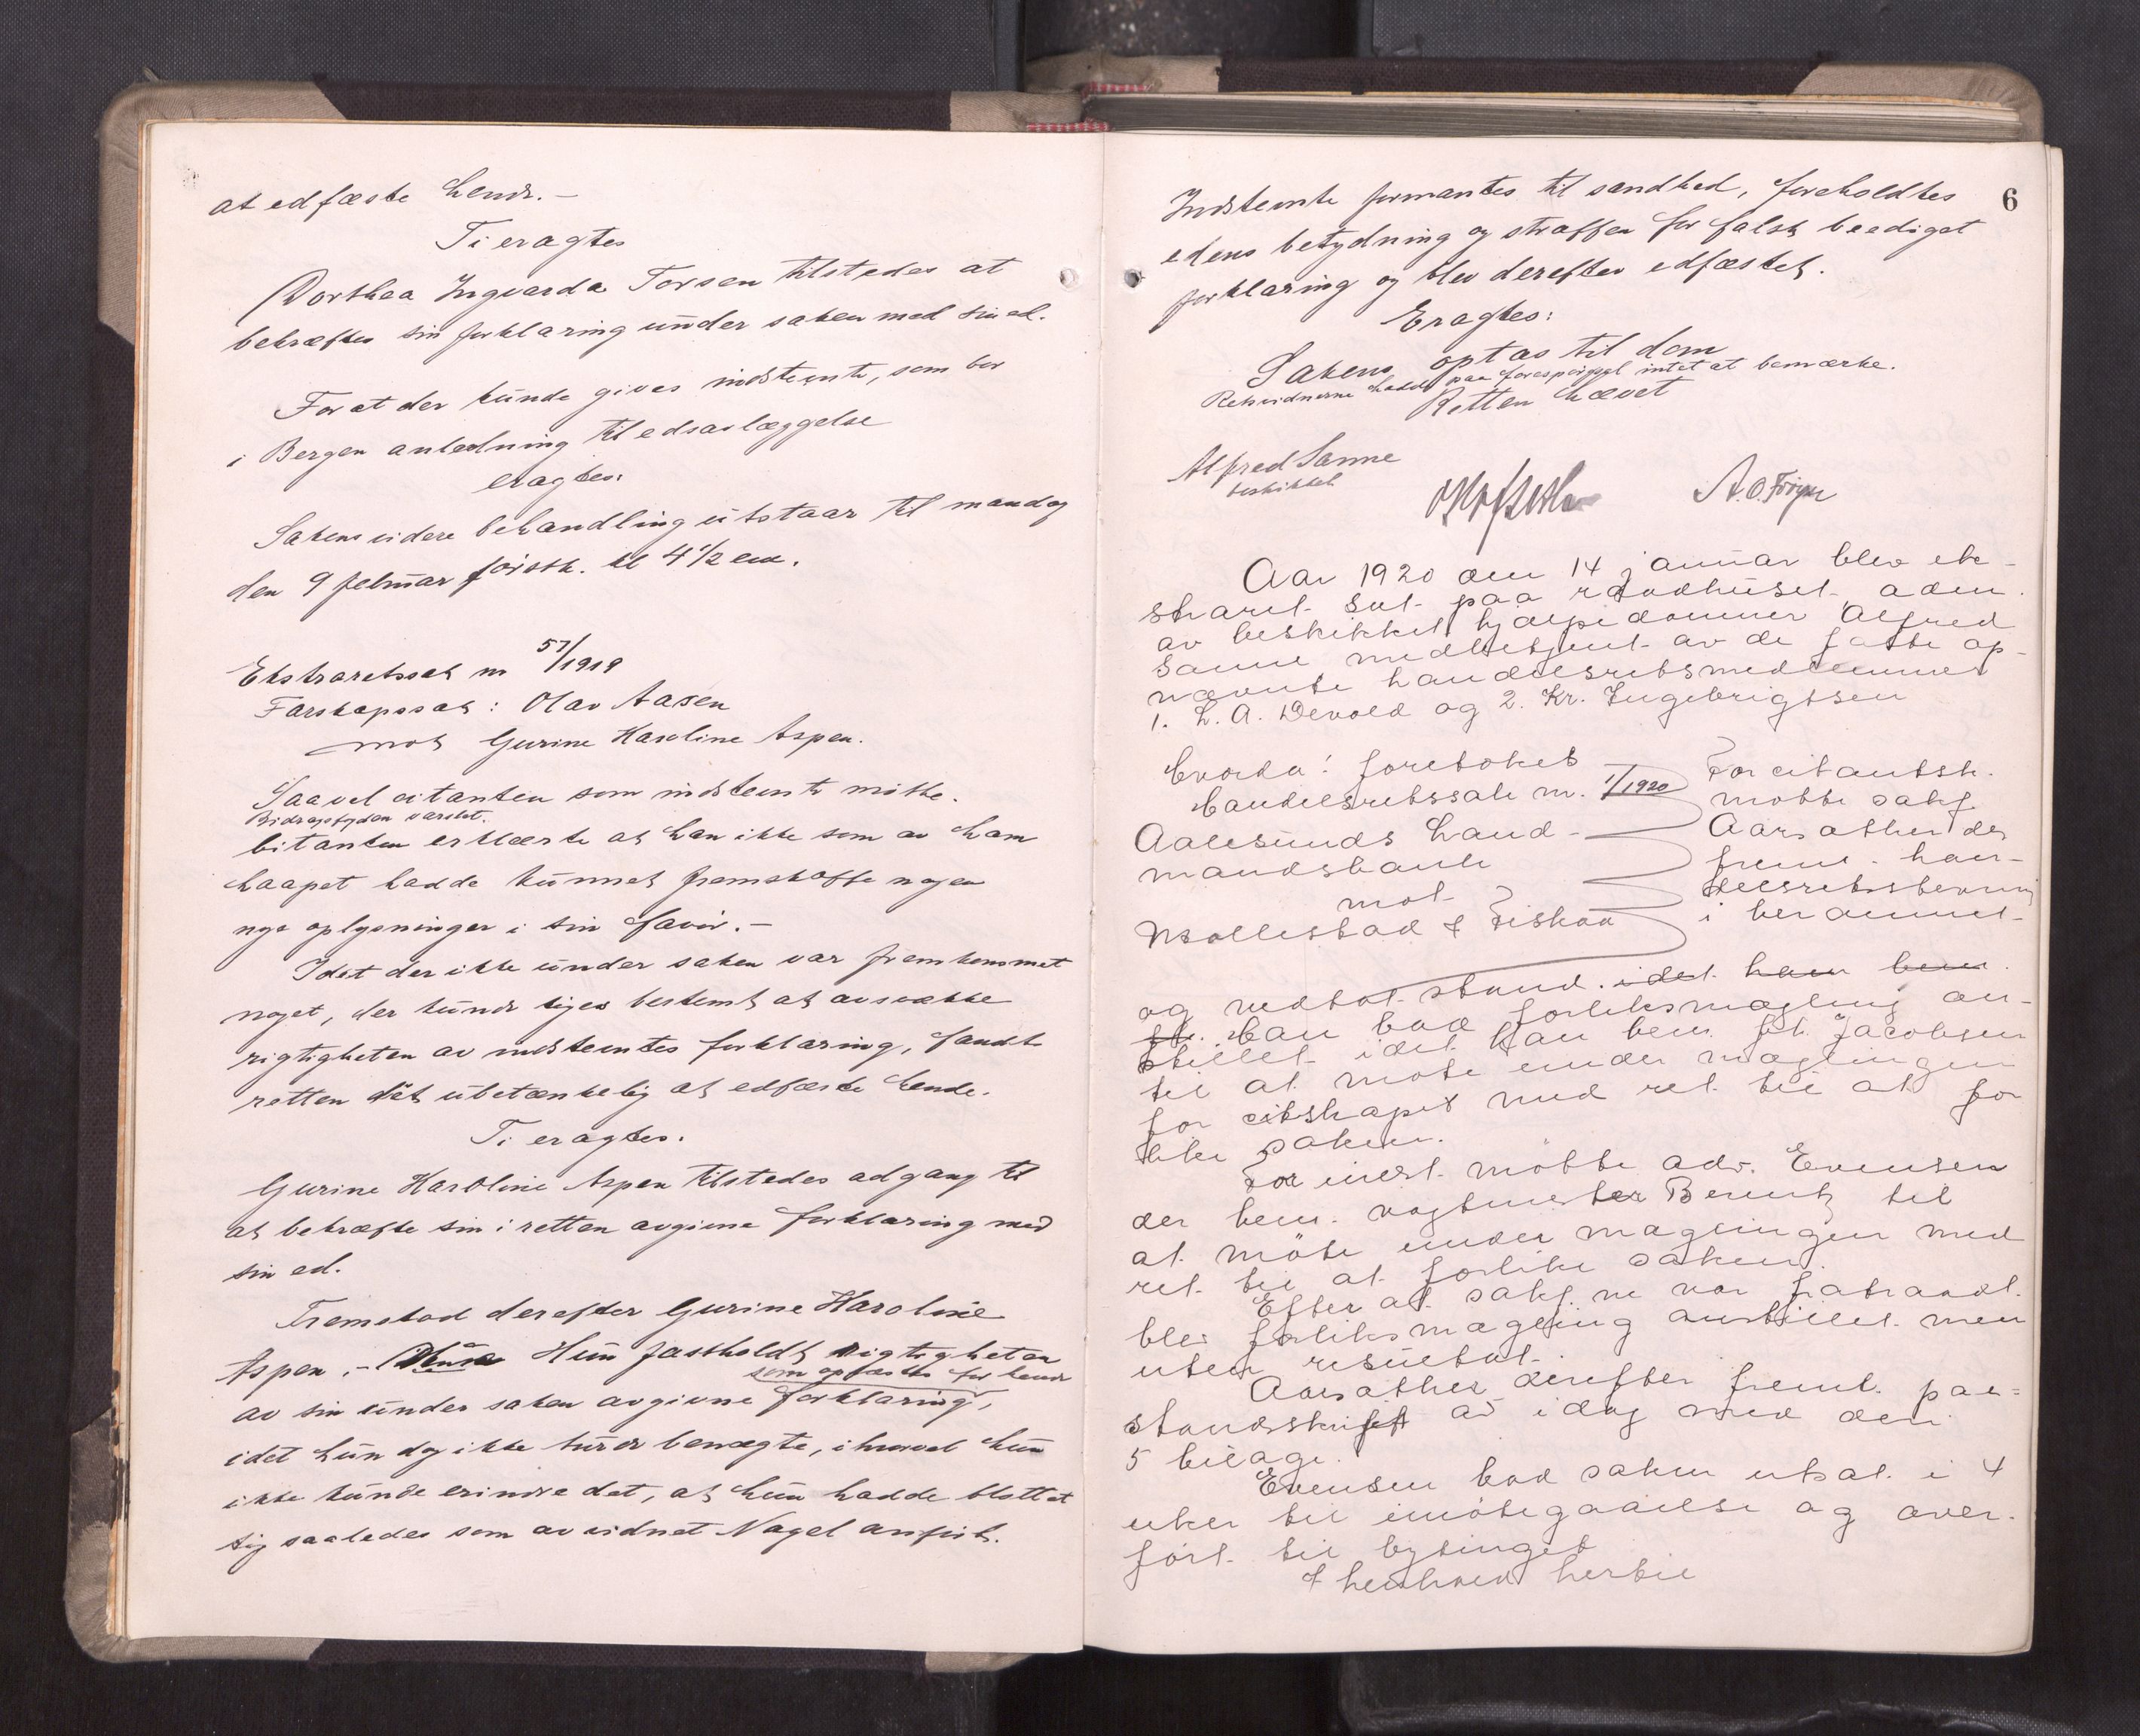 at edfæste hende.-
Ti eragtes
Dorthea Ingvarda Torsen tilstedes at
bekræfte sin forklaring under saken med sin ed.
For at der kunde gives indstevnte, som bor
i Bergen anledning til edsavlæggelse
eragtes:
Sakens videre behandling utstaar til mandag
den 9 februar førstk. kl 4 1/2 em.
Ekstraretssak nr 57/1919
Farskapssak: Olav Aasen
mot Gurine Karoline Aspen.
Saavel citanten som indstevnte møtte.
Bidragsfogden varslet.
Citanten erklærte at han ikke som av ham
haapet hadde kunnet fremskaffe nogen
nye oplysninger i sin favør.-
Idet der ikke under saken var fremkommet
noget, der kunde siges bestemt at avsvække
rigtigheten av indstevntes forklaring, fandt
retten det ubetænkelig at edfæste hende.
Ti eragtes.
Gurine Karoline Aspen tilstedes adgang til
at bekræfte sin i retten avgivne forklaring med
sin ed.
Fremstod derefter Gurine Karoline
Aspen.- Hun fastholdt rigtigheten
som oplæstes for hende
av sin under saken avgivne forklaring,
idet hun dog ikke turde benægte, ihvorvel hun
ikke kunde erindre det, at hun hadde blottet
sig saaledes som av vidnet Nagel anført.
6
Indstevnte formantes til sandhed, foreholdtes
edens betydning og straffen for falsk beediget
forklaring og blev derefter edfæstet.
Eragtes:
Saken optas til dom
Retsvidnerne hadde paa forespørgsel intet at bemærke.
Retten hævet
Alfred Sanne
beskikket
A. O.
Aar 1920 den 14 januar blev ek-
straret sat paa raadhuset adm.
av beskikket hjælpedommer Alfred
Sanne medbetjent av de faste op-
nævnte handelsretsmedlemmer
1. L. A. Devold og 2. Kr. Ingebrigtsen
Hvorda: foretokes
handelsretssak nr. 1/1920
Aalesunds Land-
mandsbank
mot
Mollestad & Fiskaa
For citantsk.
møtte sakf.
Aarsæther der
freml. han-
delsretsstevning
i berammet
og vedtat stand. idet han bem.
Han bad forliksmægling an-
stillet idet han bem. fuldm. Jacobsen
til at møte under mæglingen
for citskapet med ret til at for
like saken.
For indst. møtte adv. Evensen
der bem. vagtmester Berentz til
at møte under mæglingen med
ret til at forlike saken.
Efter at sakf.ne var fratraadt
blev forliksmægling anstillet men
uten resultat.
Aarsæther derefter freml. paa-
standsskrift av idag med den
5 bilage.
Evensen bad saken utsat i 4
uker til imøtegaaelse og over-
ført til bytinget